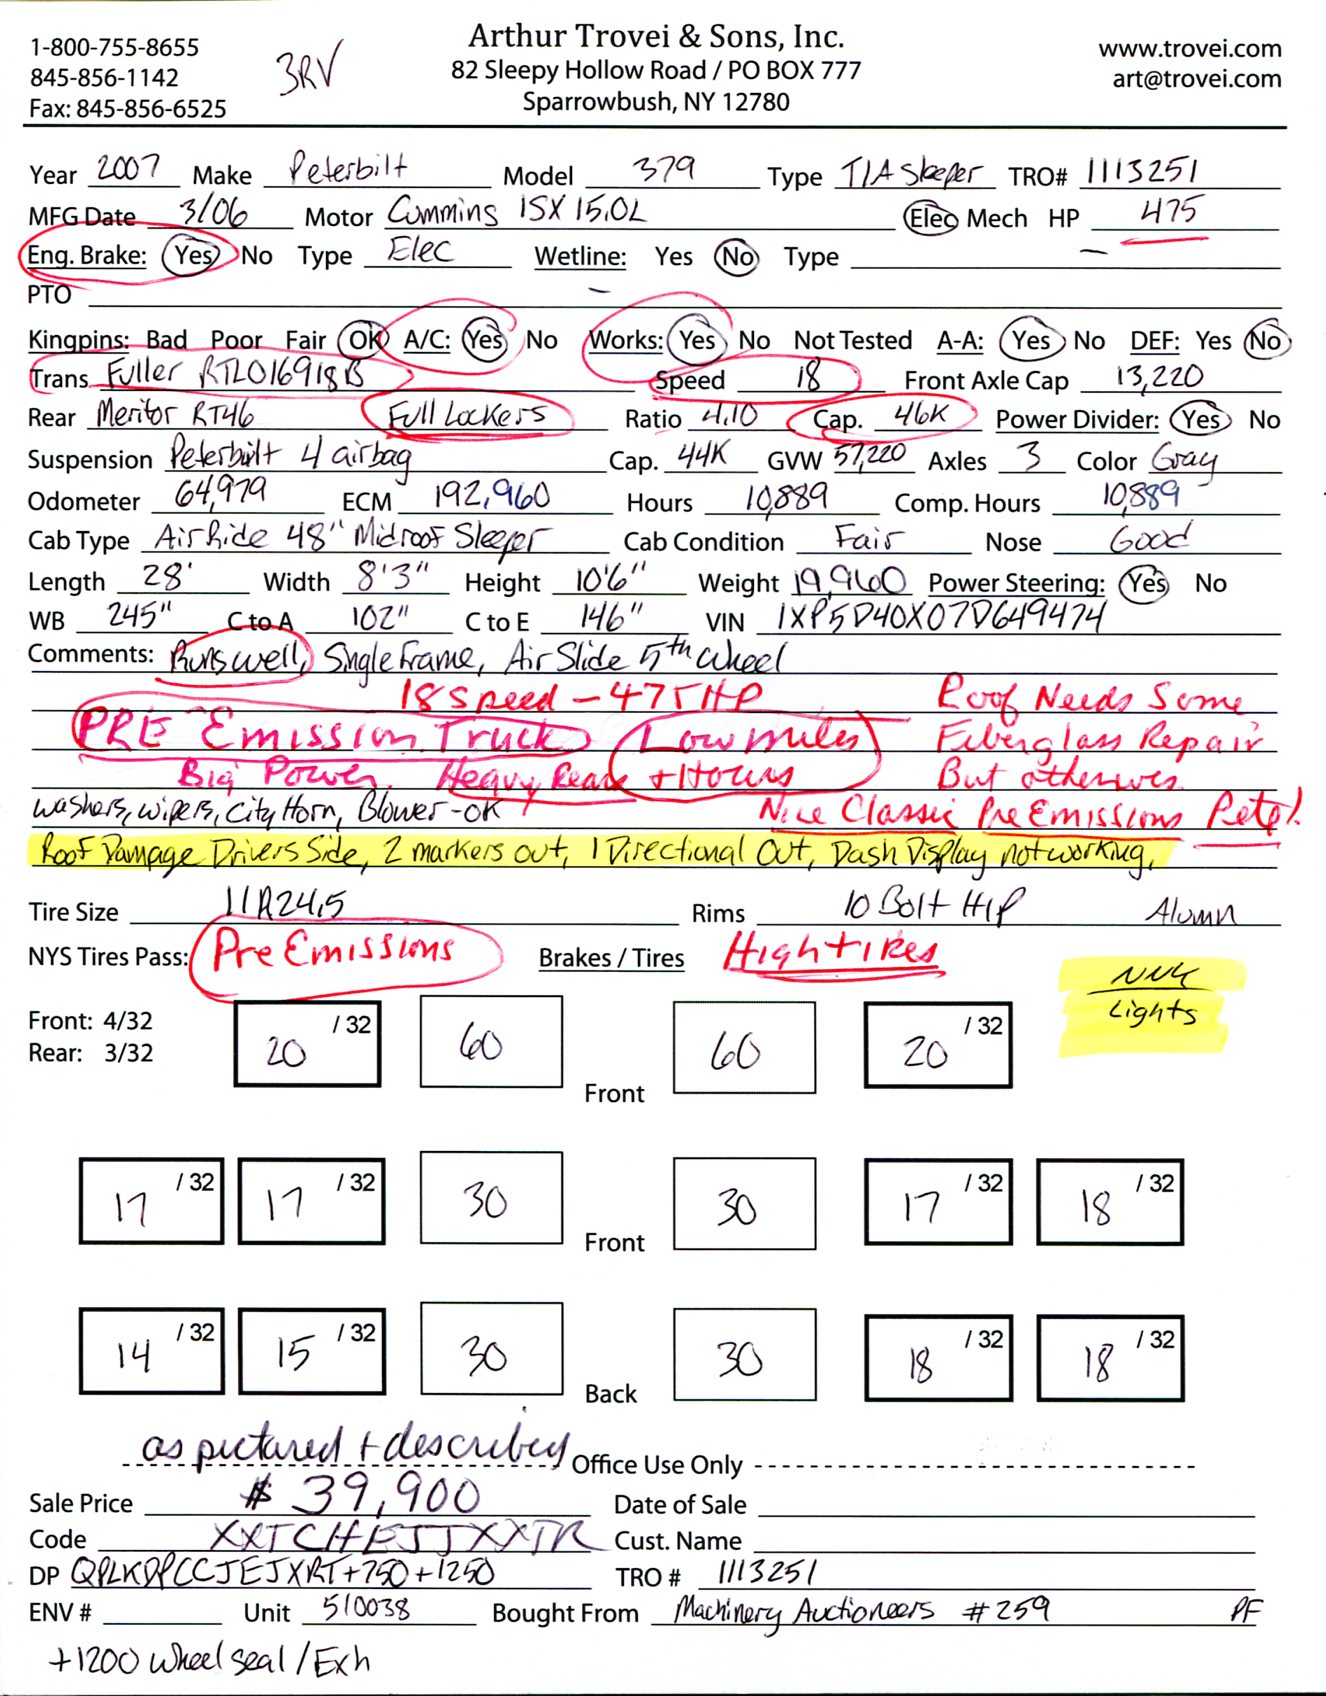 Arthur Trovei & Sons, Inc.
1-800-755-8655 82 Sleepy Hollow Road / PO BOX 777 www.trovei.com
845-856-1142 3RV Sparrowbush, NY 12780 art@trovei.com
Fax: 845-856-6525
Year 2007 Make Peterbilt Model 379 Type T/A Sleeper TRO# 1113251
MFG Date 3/06 Motor Cummins ISX 15.0L Elec Mech HP 475
Eng. Brake: Yes No Type Elec Wetline: Yes No Type
PTO
Kingpins: Bad Poor Fair OK A/C: Yes No Works: Yes No Not Tested A-A: Yes No DEF: Yes No
Trans Fuller RTLO16918B Speed 18 Front Axle Cap 13,220
Rear Meritor RT46 Full Lockers Ratio 4.10 Cap. 46K Power Divider: Yes No
Suspension Peterbilt 4 airbag Cap. 44K GVW 57,220 Axles 3 Color Gray
Odometer 64,979 ECM 192,960 Hours 10,889 Comp. Hours 10,889
Cab Type Air Ride 48" Midroof Sleeper Cab Condition Fair Nose Good
Length 28' Width 8'3" Height 10'6" Weight 19,960 Power Steering: Yes No
WB 245" C to A 102" C to E 146" VIN 1XP5D40X07D649474
Comments: Runs well, Single Frame, Air Slide 5th Wheel
18 Speed - 475 HP Roof Needs Some
PRE Emission Truck Low miles Fiberglass Repair
Big Power, Heavy Rears + Hours But otherwes.
washers, wipers, City Horn, Blower-OK Nice Classic Pre Emissions Pete!
Roof Damage Drivers Side, 2 markers out, 1 Directional Out, Dash Display not working,
Tire Size 11R24.5 Rims 10 Bolt H/P Alumn
NYS Tires Pass: Pre Emissions Brakes / Tires High tires
NNK
Lights
Front: 4/32
Rear: 3/32
20 /32 60 60 20 /32
Front
17 /32 17 /32 30 30 17 /32 18 /32
Front
14 /32 15 /32 30 30 18 /32 18 /32
Back
as pictured + described Office Use Only
Sale Price $ 39,900 Date of Sale
Code XXTCHEJJXXTR Cust. Name
DP QPLKDPCCJEJXRT+750+1250 TRO # 1113251
ENV # Unit 510038 Bought From Machinery Auctioneers #259 PF
+1200 wheel seal / Exh